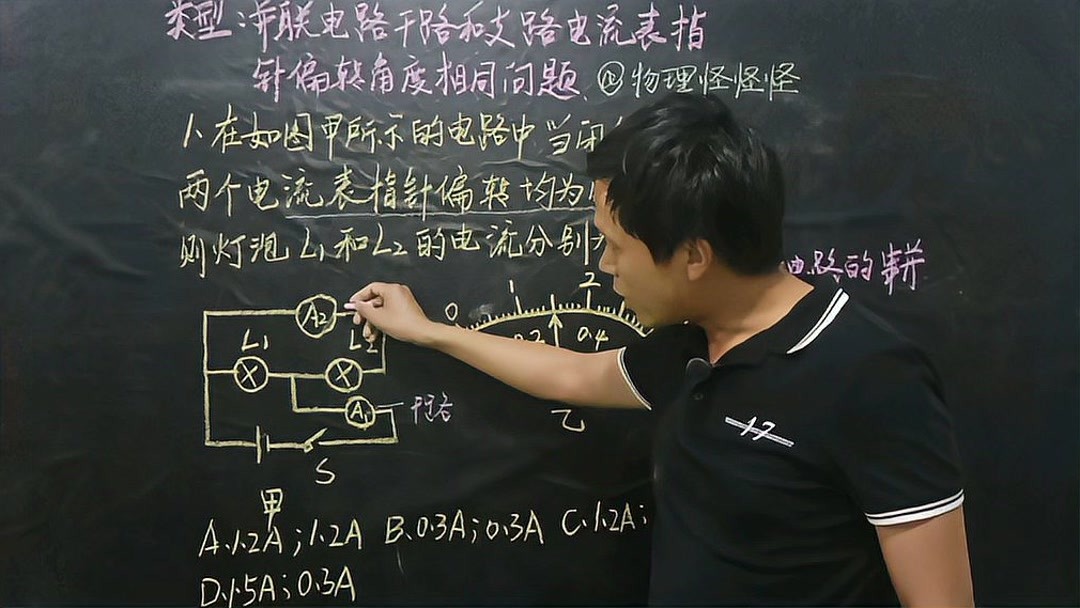 类型:并联电路干路和支路电流表指
针偏转角度相同问题、@物理怪怪怪
1、在如图甲所示的电路中当闭
两个电流表指针偏转均为
则灯泡L₁和L₂的电流分别
电路的
0 1 2
A₂
L₁ L₂
0.2 0.4
A₁ 干路
乙
S
甲
A.1.2A;1.2A B.0.3A;0.3A C.1.2A;
D.1.5A;0.3A